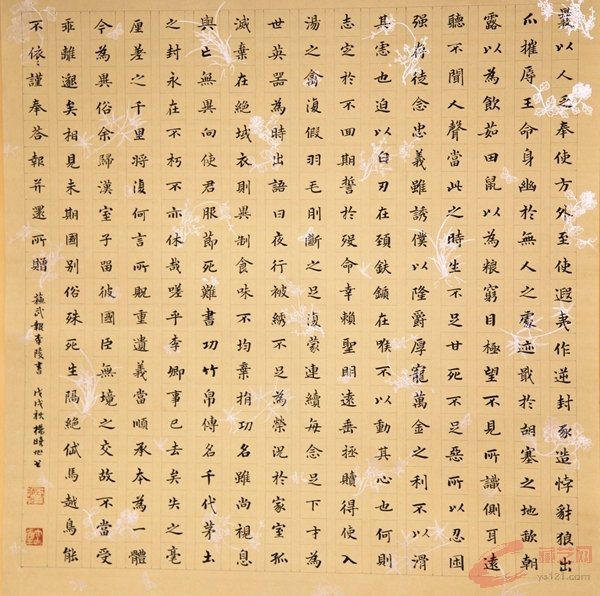 曩以人乏奉使方外至使遐夷作逆封豕造悖豺狼出
爪摧辱王命身幽於無人之處迹戢於胡塞之地歃朝
露以為飲茹田鼠以為糧窮目極望不見所識側耳遠
聽不聞人聲當此之時生不足甘死不足惡所以忍困
强存徒念忠義雖誘僕以隆爵厚寵萬金之利不以滑
其慮也迫以白刃在頸鈇鑕在喉不以動其心也何則
志定於不回期誓於殁命幸賴聖明遠垂極贖得使入
湯之禽復假羽毛刖斷之足復蒙連續每念足下才為
世英器為時出語曰夜行被綉不足為榮況於家室孤
滅棄在絕域衣則異制食味不均棄捐功名雖尚視息
與亡無異向使君服節死難書功竹帛傳名千代茅土
之封永在不朽不亦休哉嗟乎李卿事已去矣失之毫
厘差之千里將復何言所貺重遺義當順承本為一體
今為異俗余歸漢室子留彼國臣無境之交故不當受
乖離邈矣相見未期國別俗殊死生隔絕岱馬越鳥能
不依謹奉荅報并還所贈
蘇武報李陵書 戊戌秋楊曉
藏艺网
ys121.com